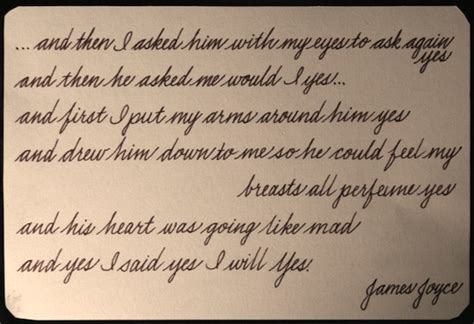 ...and then I asked him with my eyes to ask again
yes
and then he asked me would I yes...
and first I put my arms around him yes
and drew him down to me so he could feel my
breasts all perfume yes
and his heart was going like mad
and yes I said yes I will Yes.
James Joyce